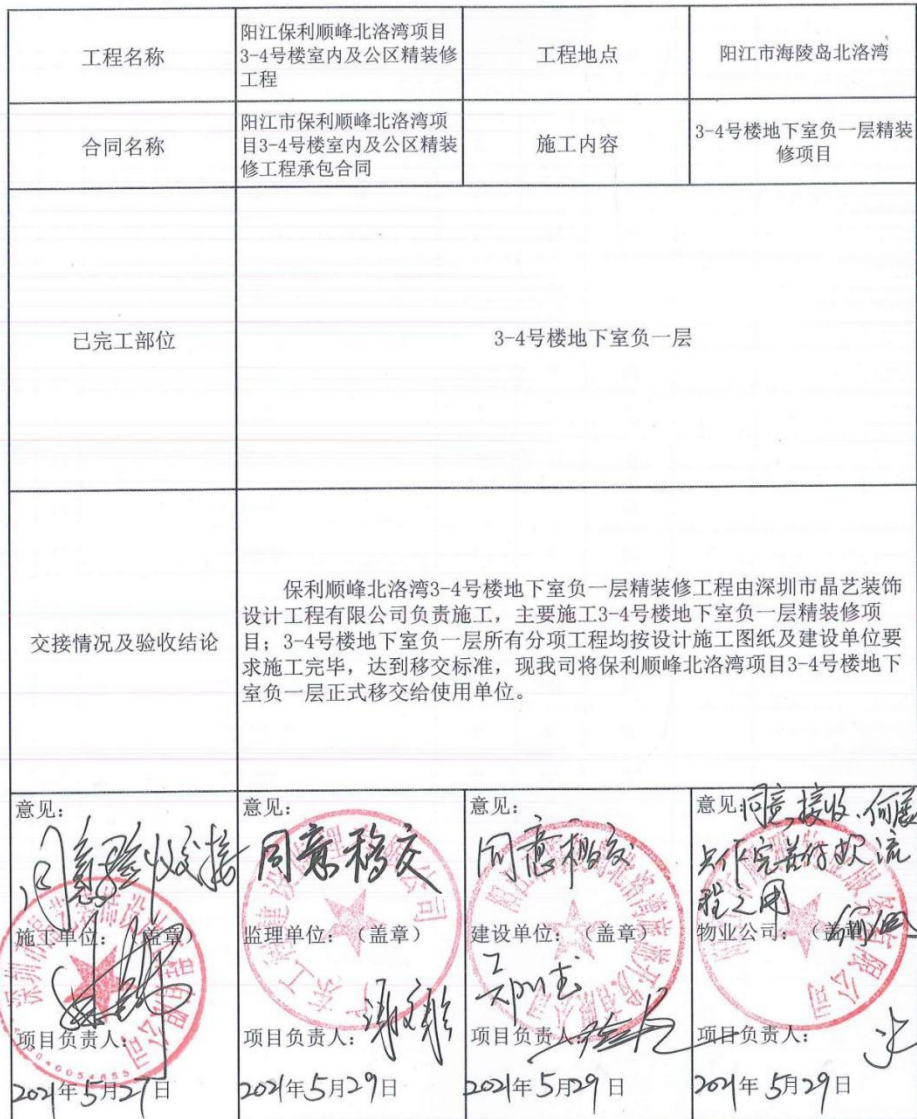 工程名称
阳江保利顺峰北洛湾项目
3-4号楼室内及公区精装修
工程
工程地点
阳江市海陵岛北洛湾
合同名称
阳江市保利顺峰北洛湾项
目3-4号楼室内及公区精装
修工程承包合同
施工内容
3-4号楼地下室负一层精装
修项目
已完工部位
3-4号楼地下室负一层
交接情况及验收结论
保利顺峰北洛湾3-4号楼地下室负一层精装修工程由深圳市晶艺装饰
设计工程有限公司负责施工，主要施工3-4号楼地下室负一层精装修项
目；3-4号楼地下室负一层所有分项工程均按设计施工图纸及建设单位要
求施工完毕，达到移交标准，现我司将保利顺峰北洛湾项目3-4号楼地下
室负一层正式移交给使用单位。
意见：
同意验收交接
施工单位：（盖章）
项目负责人：
2021年5月27日
意见：
同意移交
监理单位：（盖章）
项目负责人：
2021年5月29日
意见：
同意移交
建设单位：（盖章）
项目负责人：
2021年5月29日
意见：同意接收
流
程之用
物业公司：（盖章）
项目负责人：
2021年5月29日